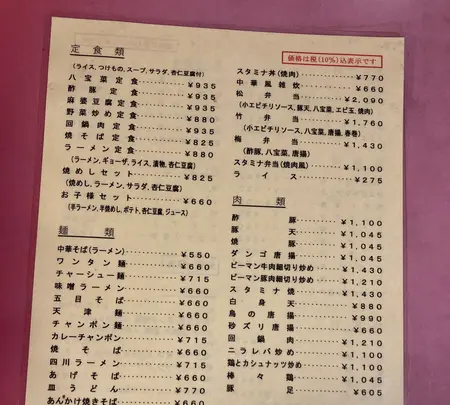 定食類
(ライス、つけもの、スープ、サラダ、杏仁豆腐付)
八宝菜定食 ¥935
酢豚定食 ¥935
麻婆豆腐定食 ¥935
野菜炒め定食 ¥880
回鍋肉定食 ¥935
焼そば定食 ¥825
ラーメン定食 ¥880
(ラーメン、ギョーザ、ライス、漬物、杏仁豆腐)
焼めしセット ¥825
(焼めし、ラーメン、サラダ、杏仁豆腐)
お子様セット ¥660
(半ラーメン、半焼めし、ポテト、杏仁豆腐、ジュース)
麺類
中華そば(ラーメン) ¥550
ワンタン麺 ¥660
チャーシュー麺 ¥715
味噌ラーメン ¥660
五目そば ¥660
天津麺 ¥660
チャンポン麺 ¥660
カレーチャンポン ¥715
焼そば ¥660
四川ラーメン ¥715
あげそば ¥660
皿うどん ¥770
あんかけ焼きそば ¥660
価格は税(10%)込表示です
スタミナ丼(焼肉) ¥770
中華風雑炊 ¥660
松弁当 ¥2,090
(小エビチリソース、豚天、八宝菜、エビ玉、焼肉)
竹弁当 ¥1,760
(小エビチリソース、八宝菜、唐揚、春巻)
梅弁当 ¥1,430
(酢豚、八宝菜、唐揚)
スタミナ弁当(焼肉風) ¥1,100
ライス ¥275
肉類
酢豚 ¥1,100
豚天 ¥1,045
焼豚 ¥1,045
ダンゴ唐揚 ¥1,045
ピーマン牛肉細切り炒め ¥1,430
ピーマン豚肉細切り炒め ¥1,210
スタミナ焼 ¥1,430
白身天 ¥880
鳥の唐揚 ¥990
砂ズリ唐揚 ¥1,100
回鍋肉 ¥1,210
ニラレバ炒め ¥1,100
鶏とカシュナッツ炒め ¥1,100
棒々鶏 ¥1,045
豚足 ¥605